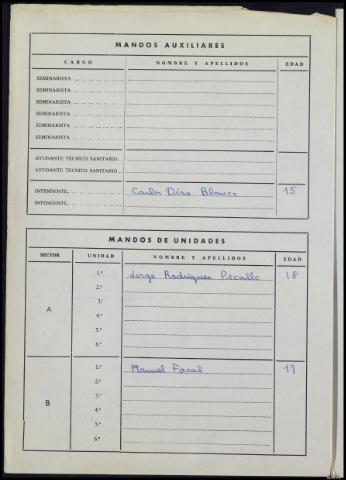 MANDOS AUXILIARES
CARGO NOMBRE Y APELLIDOS EDAD
SEMINARISTA
SEMINARISTA
SEMINARISTA
SEMINARISTA
SEMINARISTA
SEMINARISTA
AYUDANTE TECNICO SANITARIO
AYUDANTE TECNICO SANITARIO
INTENDENTE Carlos Díaz Blanco 15
INTENDENTE
MANDOS DE UNIDADES
SECTOR UNIDAD NOMBRE Y APELLIDOS EDAD
A
1.ª Jorge Rodriguez Picallo 18
2.ª
3.ª
4.ª
5.ª
6.ª
B
1.ª Manuel Facal 17
2.ª
3.ª
4.ª
5.ª
6.ª